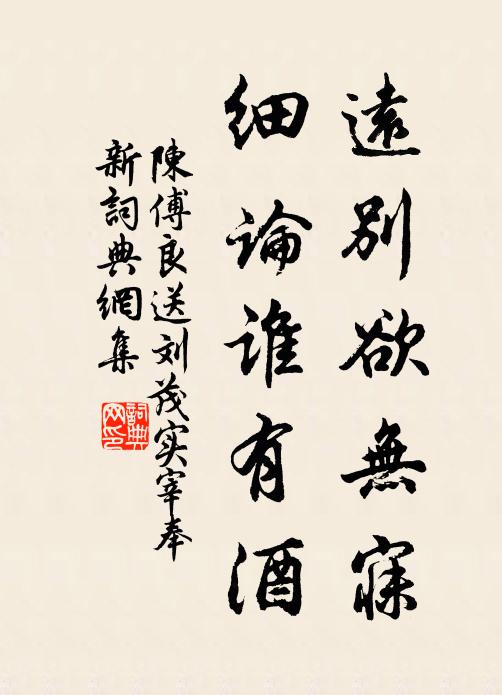 遠別欲無寐
細論誰有酒
陳傅良送刘茂实宰奉
新詞典網集
詞典
网印